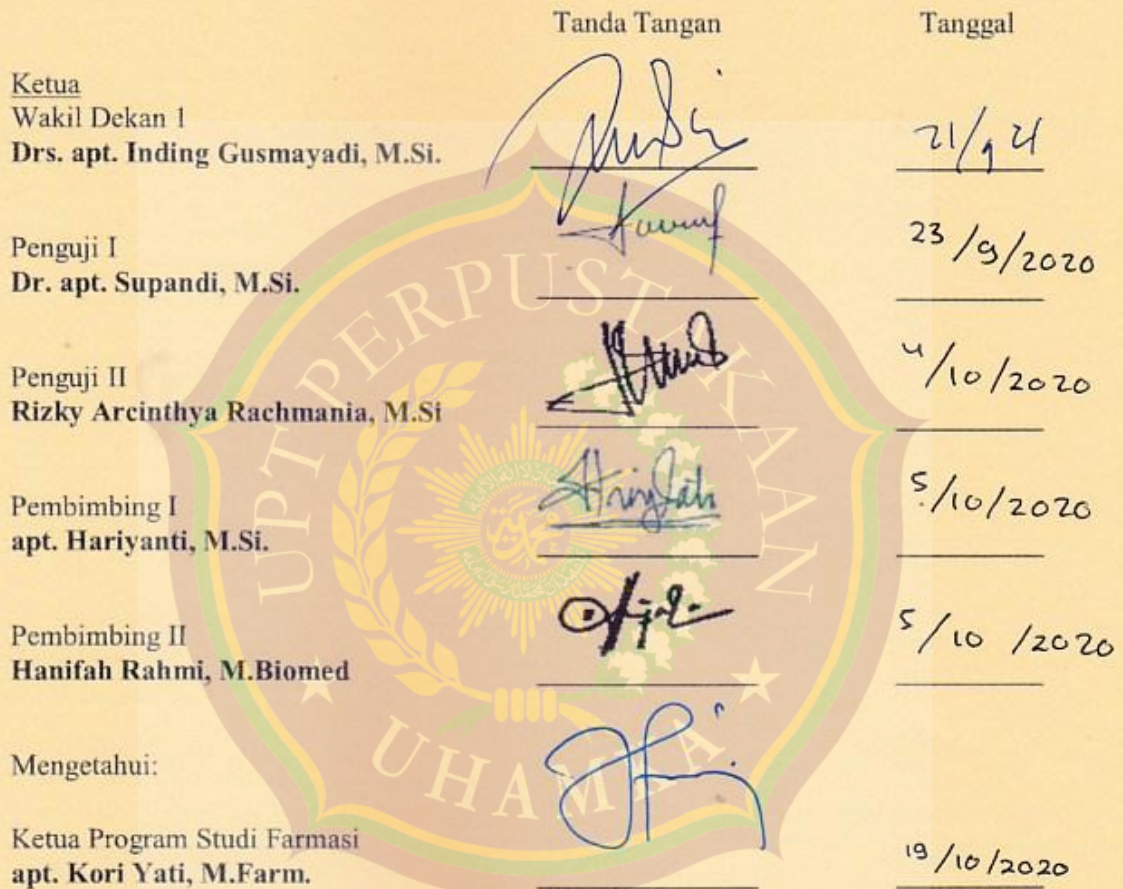 Tanda Tangan Tanggal
Ketua
Wakil Dekan 1
Drs. apt. Inding Gusmayadi, M.Si. 21/9 21
Penguji I
Dr. apt. Supandi, M.Si. 23/9/2020
Penguji II
Rizky Arcinthya Rachmania, M.Si 4/10/2020
Pembimbing I
apt. Hariyanti, M.Si. 5/10/2020
Pembimbing II
Hanifah Rahmi, M.Biomed 5/10/2020
Mengetahui:
Ketua Program Studi Farmasi
apt. Kori Yati, M.Farm. 19/10/2020
UPT PERPUSTAKAAN
UHAMKA